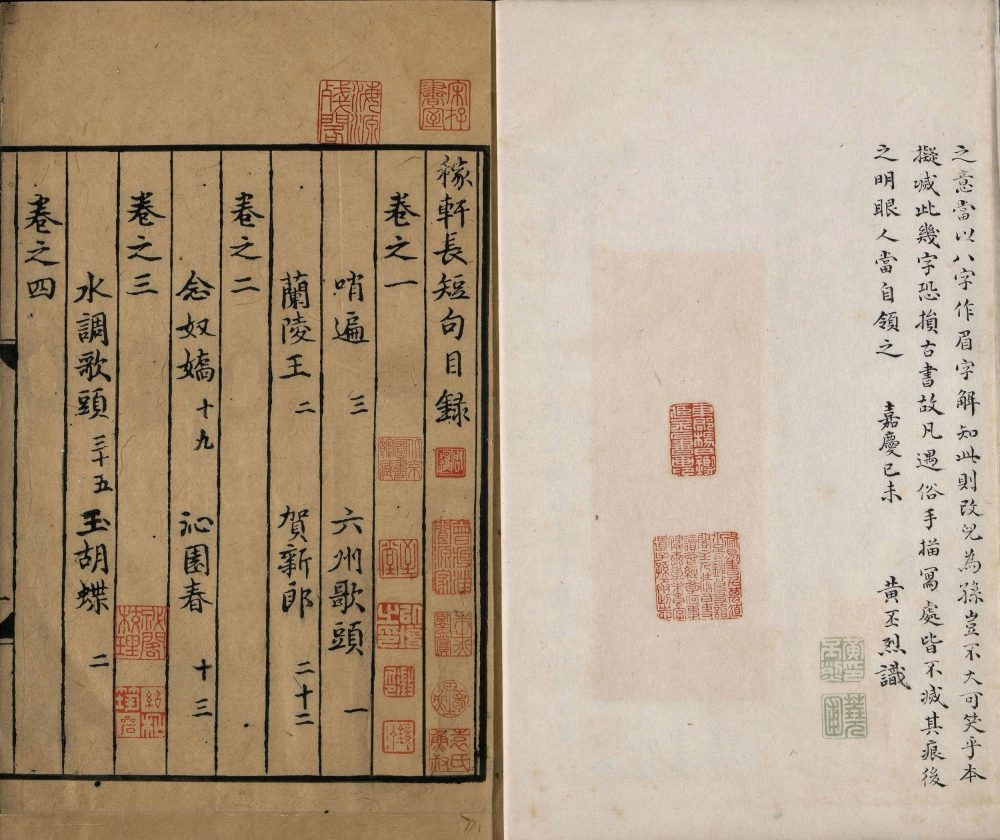 之意當以八字作眉字解知此則改兒為孫豈不大可笑乎本
擬滅此幾字恐損古書故凡遇俗手描寫處皆不滅其痕後
之明眼人當自領之 嘉慶己未 黃丕烈識
宋存書室
海源殘閣
稼軒長短句目録
卷之一
哨遍 三 六州歌頭 一
蘭陵王 二 賀新郎 二十二
卷之二
念奴嬌 十九 沁園春 十三
卷之三
水調歌頭 三十五 玉胡蝶 二
卷之四